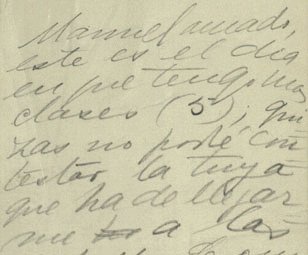 Manuel amado,
este es el dia
en que tengo mas
clases (5), qui
zas no podré con
testar la tuya
que ha de llegar
me a las